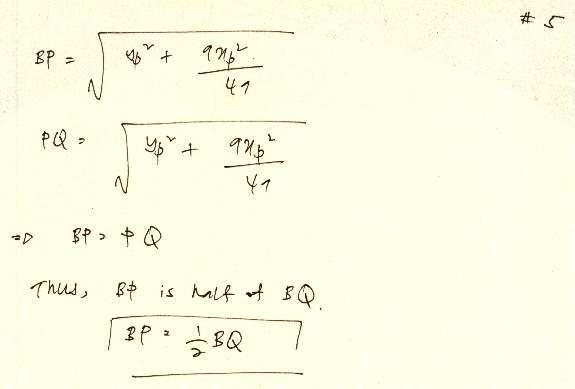 # 5
BP = √(yp² + 9xp²/49)
PQ = √(yp² + 9xp²/49)
⇒ BP = PQ
Thus, BP is half of BQ.
BP = 1/2 BQ